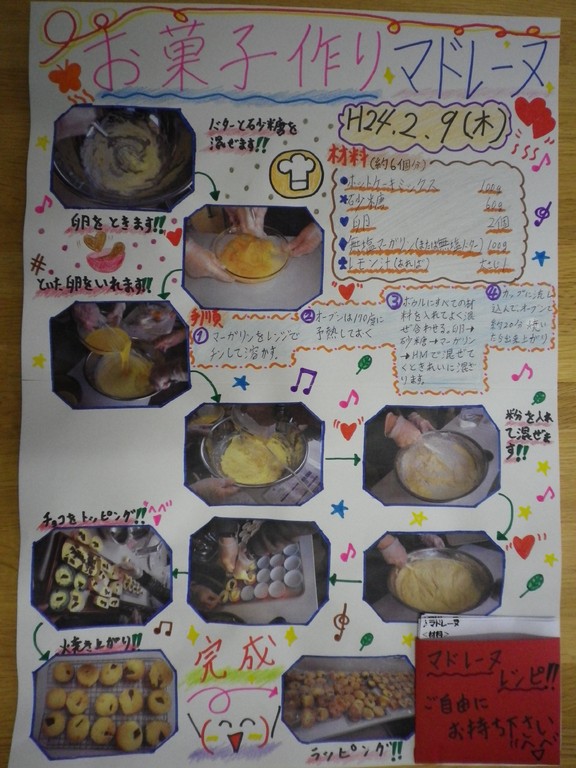 お菓子作り マドレーヌ
H24.2.9(木)
バターと砂糖を
混ぜます!!
卵をときます!!
といた卵をいれます!!
材料(約6個分)
ホットケーキミックス 100g
砂糖 60g
卵 2個
無塩マーガリン(または無塩バター) 100g
レモン汁(あれば) 少々
手順
① マーガリンをレンジで
チンして溶かす。
② オーブンは170度に
予熱しておく
③ ボウルにすべての材
料を入れてよく混
ぜ合わせる。卵→
砂糖→マーガリン
→HMで混ぜて
くときれいに混ざ
ります。
④ カップに流し
込んで、オーブンで
約20分焼い
たら出来上がり
粉を入れ
て混ぜま
す!!
チョコをトッピング!!
焼き上がり!!
完成
ラッピング!!
マドレーヌ
<材料>
マドレーヌ
レシピ!!
ご自由に
お持ち下さい